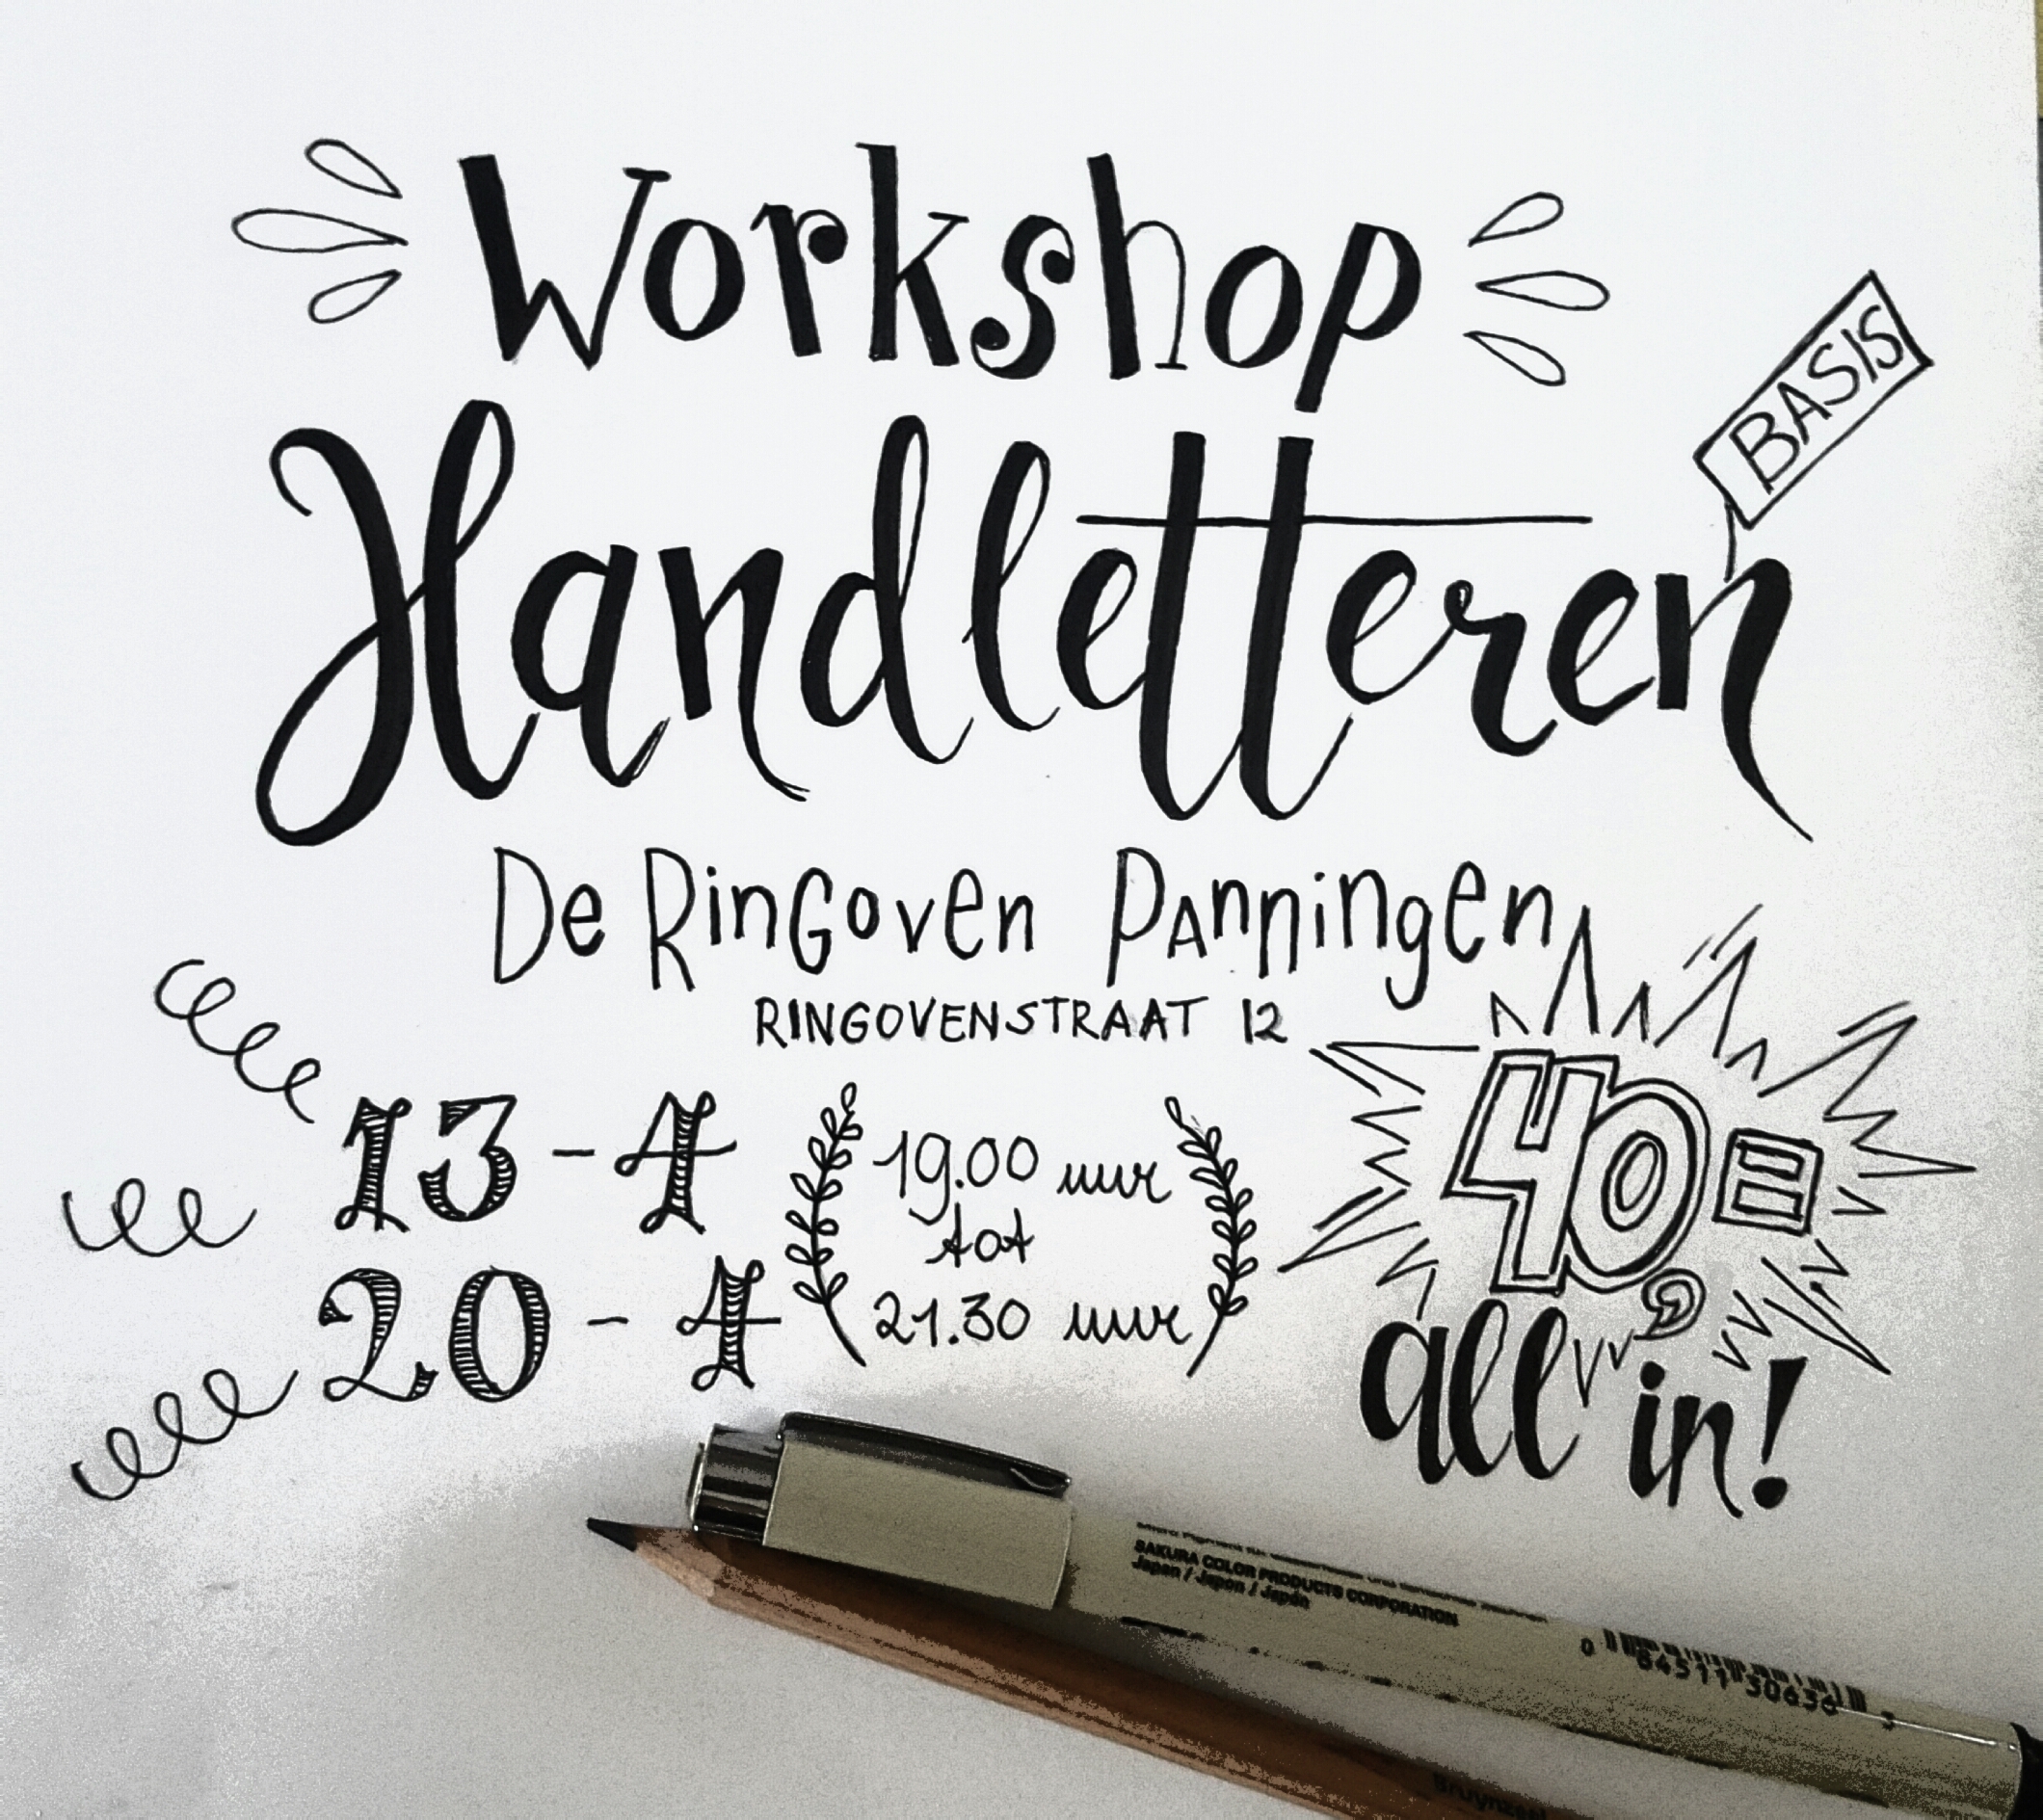 Workshop
Handletteren
BASIS
De RinGoven PAnningen
RINGOVENSTRAAT 12
13-4
20-4
19.00 uur
tot
21.30 uur
40,=
all in!
SAKURA COLOR PRODUCTS CORPORATION
Japan / Japon / Japón
0 84511 30636 3
Bruynzeel